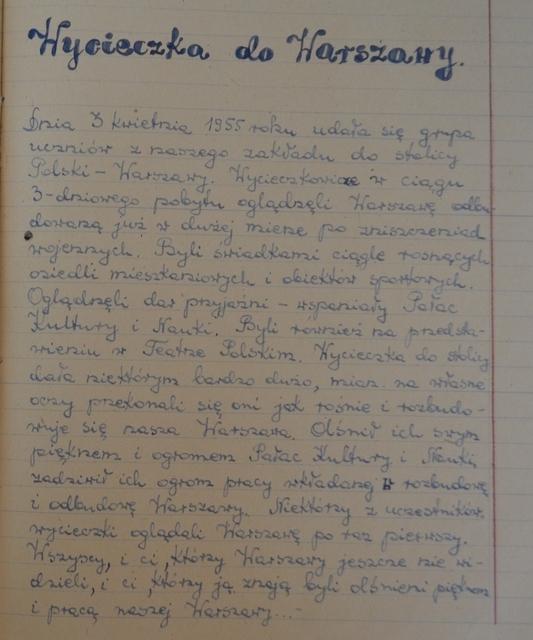 Wycieczka do Warszawy.
Dnia 3 kwietnia 1955 roku udała się grupa
uczniów z naszego zakładu do stolicy
Polski – Warszawy. Wycieczkowicze w ciągu
3-dniowego pobytu oglądzęli Warszawę odbu-
dowaną już w dużej mierze po zniszczeniach
wojennych. Byli świadkami ciągle rosnących
osiedli mieszkaniowych i obiektów sportowych.
Oglądzęli dar przyjaźni – wspaniały Pałac
Kultury i Nauki. Byli również na przedsta-
wieniu w Teatrze Polskim. Wycieczka do stolicy
dała niektórym bardzo dużo, mian. na własne
oczy przekonali się oni jak rośnie i rozbudo-
wuje się nasza Warszawa. Olśnił ich swym
pięknem i ogromem Pałac Kultury i Nauki,
zadziwił ich ogrom pracy wkładanej w rozbudowę
i odbudowę Warszawy. Niektórzy z uczestników
wycieczki oglądali Warszawę po raz pierwszy.
Wszyscy, i ci, którzy Warszawy jeszcze nie wi-
dzieli, i ci, którzy ją znają byli olśnieni pięknem
i pracą naszej Warszawy...-